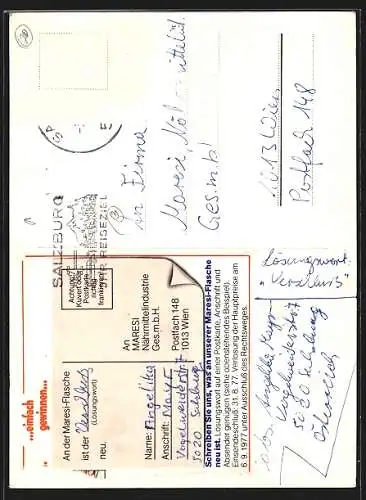 SALZBURG
IHR REISEZIEL
an Firma
Maresi, Nährmittelind.
Ges.m.b.H
1013 Wien
Postfach 148
Lösungswort:
"Verschluss"
5020 Salzburg
Österreich
...einfach
gewinnen...
An der Maresi-Flasche
ist der Verschluss
(Lösungswort)
neu.
Achtung!
Kuvert oder
Postkarte
richtig
frankieren!
An
MARESI
Nährmittelindustrie
Ges.m.b.H.
Postfach 148
1013 Wien
Name: Angelika
Anschrift: Mayr
Vogelweiderstr
5020 Salzburg
Schreiben Sie uns, was an unserer Maresi-Flasche
neu ist. Lösungswort auf einer Postkarte, Anschrift und
Absender genügen (siehe obenstehendes Beispiel).
Einsendeschluß: 31. 8. 77. Verlosung der Hauptpreise am
6. 9. 1977 unter Ausschluß des Rechtsweges.